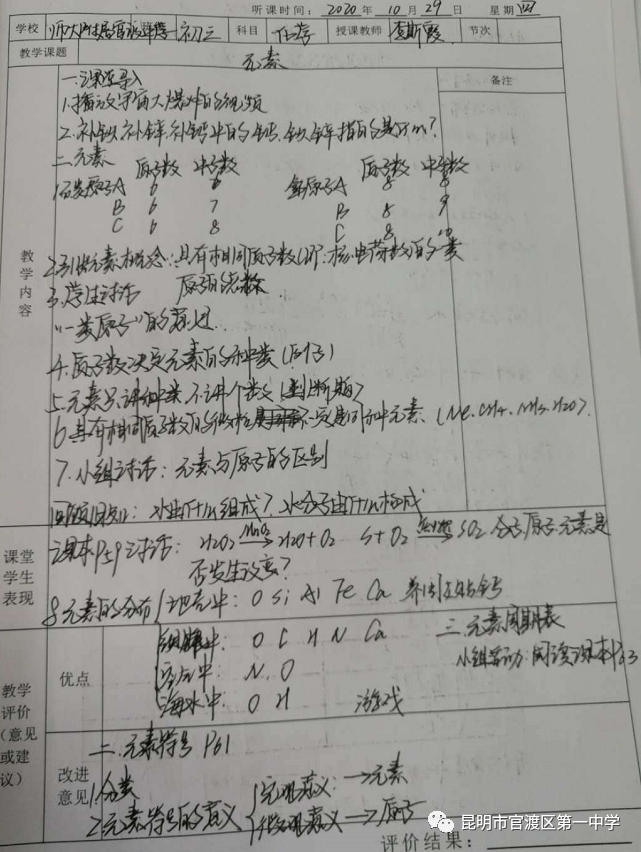 听课时间: 2020 年 10 月 29 日 星期 四
学校 师大附属官渡 初三 科目 化学 授课教师 查斯霞 节次
教学课题 元素
备注
一、课堂导入
1.播放宇宙大爆炸的视频
2.补铁、补锌、补钙中的钙、铁、锌指的是什么?
二.元素
质子数 中子数 质子数 中子数
1.碳原子A 6 6 氧原子A 8 8
B 6 7 B 8 9
C 6 8 C 8 10
教学内容
2.引出元素概念:具有相同质子数(即:核电荷数)的一类
原子的总称
3.学生讨论
"一类原子"的原因..
4.质子数决定元素的种类(原子)
5.元素只讲种类,不讲个数(判断题)
6.具有相同质子数的微粒不一定是同种元素.(Ne.CH4.NH3.H2O).
7.小组讨论:元素与原子的区别
回顾旧知:水由什么组成?水分子由什么构成
课堂学生表现
课本P59讨论:H2O2 MnO2 H2O+O2 S+O2 点燃 SO2 分子、原子、元素是
否发生改变?
8.元素的分布 地壳中: O Si Al Fe Ca 养闺女贴钙
细胞中: O C H N Ca 三.元素周期表
小组活动:阅读课本P63
空气中: N.O
海水中: O H 游戏
教学评价(意见或建议)
优点
改进意见
二.元素符号 P61
1.分类
2.元素符号的意义 宏观意义:→元素
微观意义→原子
评价结果:
昆明市官渡区第一中学